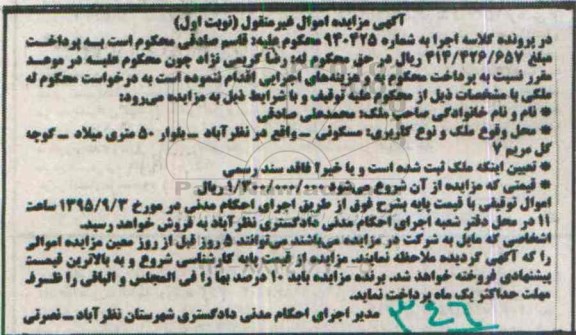 آگهی مزایده اموال غیرمنقول (نوبت اول)
در پرونده کلاسه اجرا به شماره ۹۴۰۴۲۵ محکوم علیه: قاسم صادقی محکوم است به پرداخت
مبلغ ۴۱۴/۴۲۶/۶۵۷ ریال در حق محکوم له: رضا کریمی نژاد چون محکوم علیه در موعد
مقرر نسبت به پرداخت محکوم به و هزینه‌های اجرایی اقدام ننموده است به درخواست محکوم له
ملکی با مشخصات ذیل از محکوم علیه توقیف و با شرایط ذیل به مزایده می‌رود:
* نام و نام خانوادگی صاحب ملک: محمدعلی صادقی
* محل وقوع ملک و نوع کاربری: مسکونی ـ واقع در نظرآباد ـ بلوار ۵۰ متری میلاد ـ کوچه
گل مریم ۷
* تعیین اینکه ملک ثبت شده است و یا خیر؟ فاقد سند رسمی
* قیمتی که مزایده از آن شروع می‌شود ۱/۲۰۰/۰۰۰/۰۰۰ ریال
اموال توقیفی با قیمت پایه بشرح فوق از طریق اجرای احکام مدنی در مورخ ۱۳۹۵/۹/۳ ساعت
۱۱ در محل دفتر شعبه اجرای احکام مدنی دادگستری نظرآباد به فروش خواهد رسید.
اشخاصی که مایل به شرکت در مزایده می‌باشند می‌توانند ۵ روز قبل از روز معین مزایده اموالی
را که آگهی گردیده ملاحظه نمایند. مزایده از قیمت پایه کارشناسی شروع و به بالاترین قیمت
پیشنهادی فروخته خواهد شد. برنده مزایده باید ۱۰ درصد بها را فی المجلس و الباقی را ظرف
مهلت حداکثر یک ماه پرداخت نماید.
مدیر اجرای احکام مدنی دادگستری شهرستان نظرآباد ـ نصرتی
۳۴۶